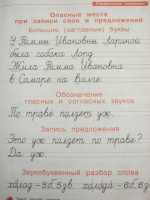 Опасные места
при записи слов и предложений
Большие (заглавные) буквы
У Риммы Ивановны Лариной
была собака Лорд.
Жила Римма Ивановна
в Самаре на Волге.
Обозначение
гласных и согласных звуков
По траве ползёт уж.
Запись предложения
Это уж ползёт по траве?
Да, уж.
Звукобуквенный разбор слова
холод – 5б. 5зв. холода – 6б. 6зв.